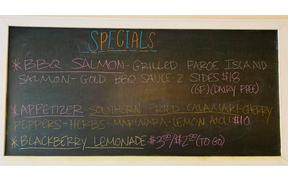 SPECIALS
*BBQ SALMON-GRILLED FAROE ISLAND
SALMON-GOLD BBQ SAUCE-2 SIDES $18
(GF)(DAIRY FREE)
*APPETIZER SOUTHERN FRIED CALAMARI-CHERRY
PEPPERS-HERBS-MARINARA-LEMON AIOLI $10
*BLACKBERRY LEMONADE $3.00/$2.00(TO GO)